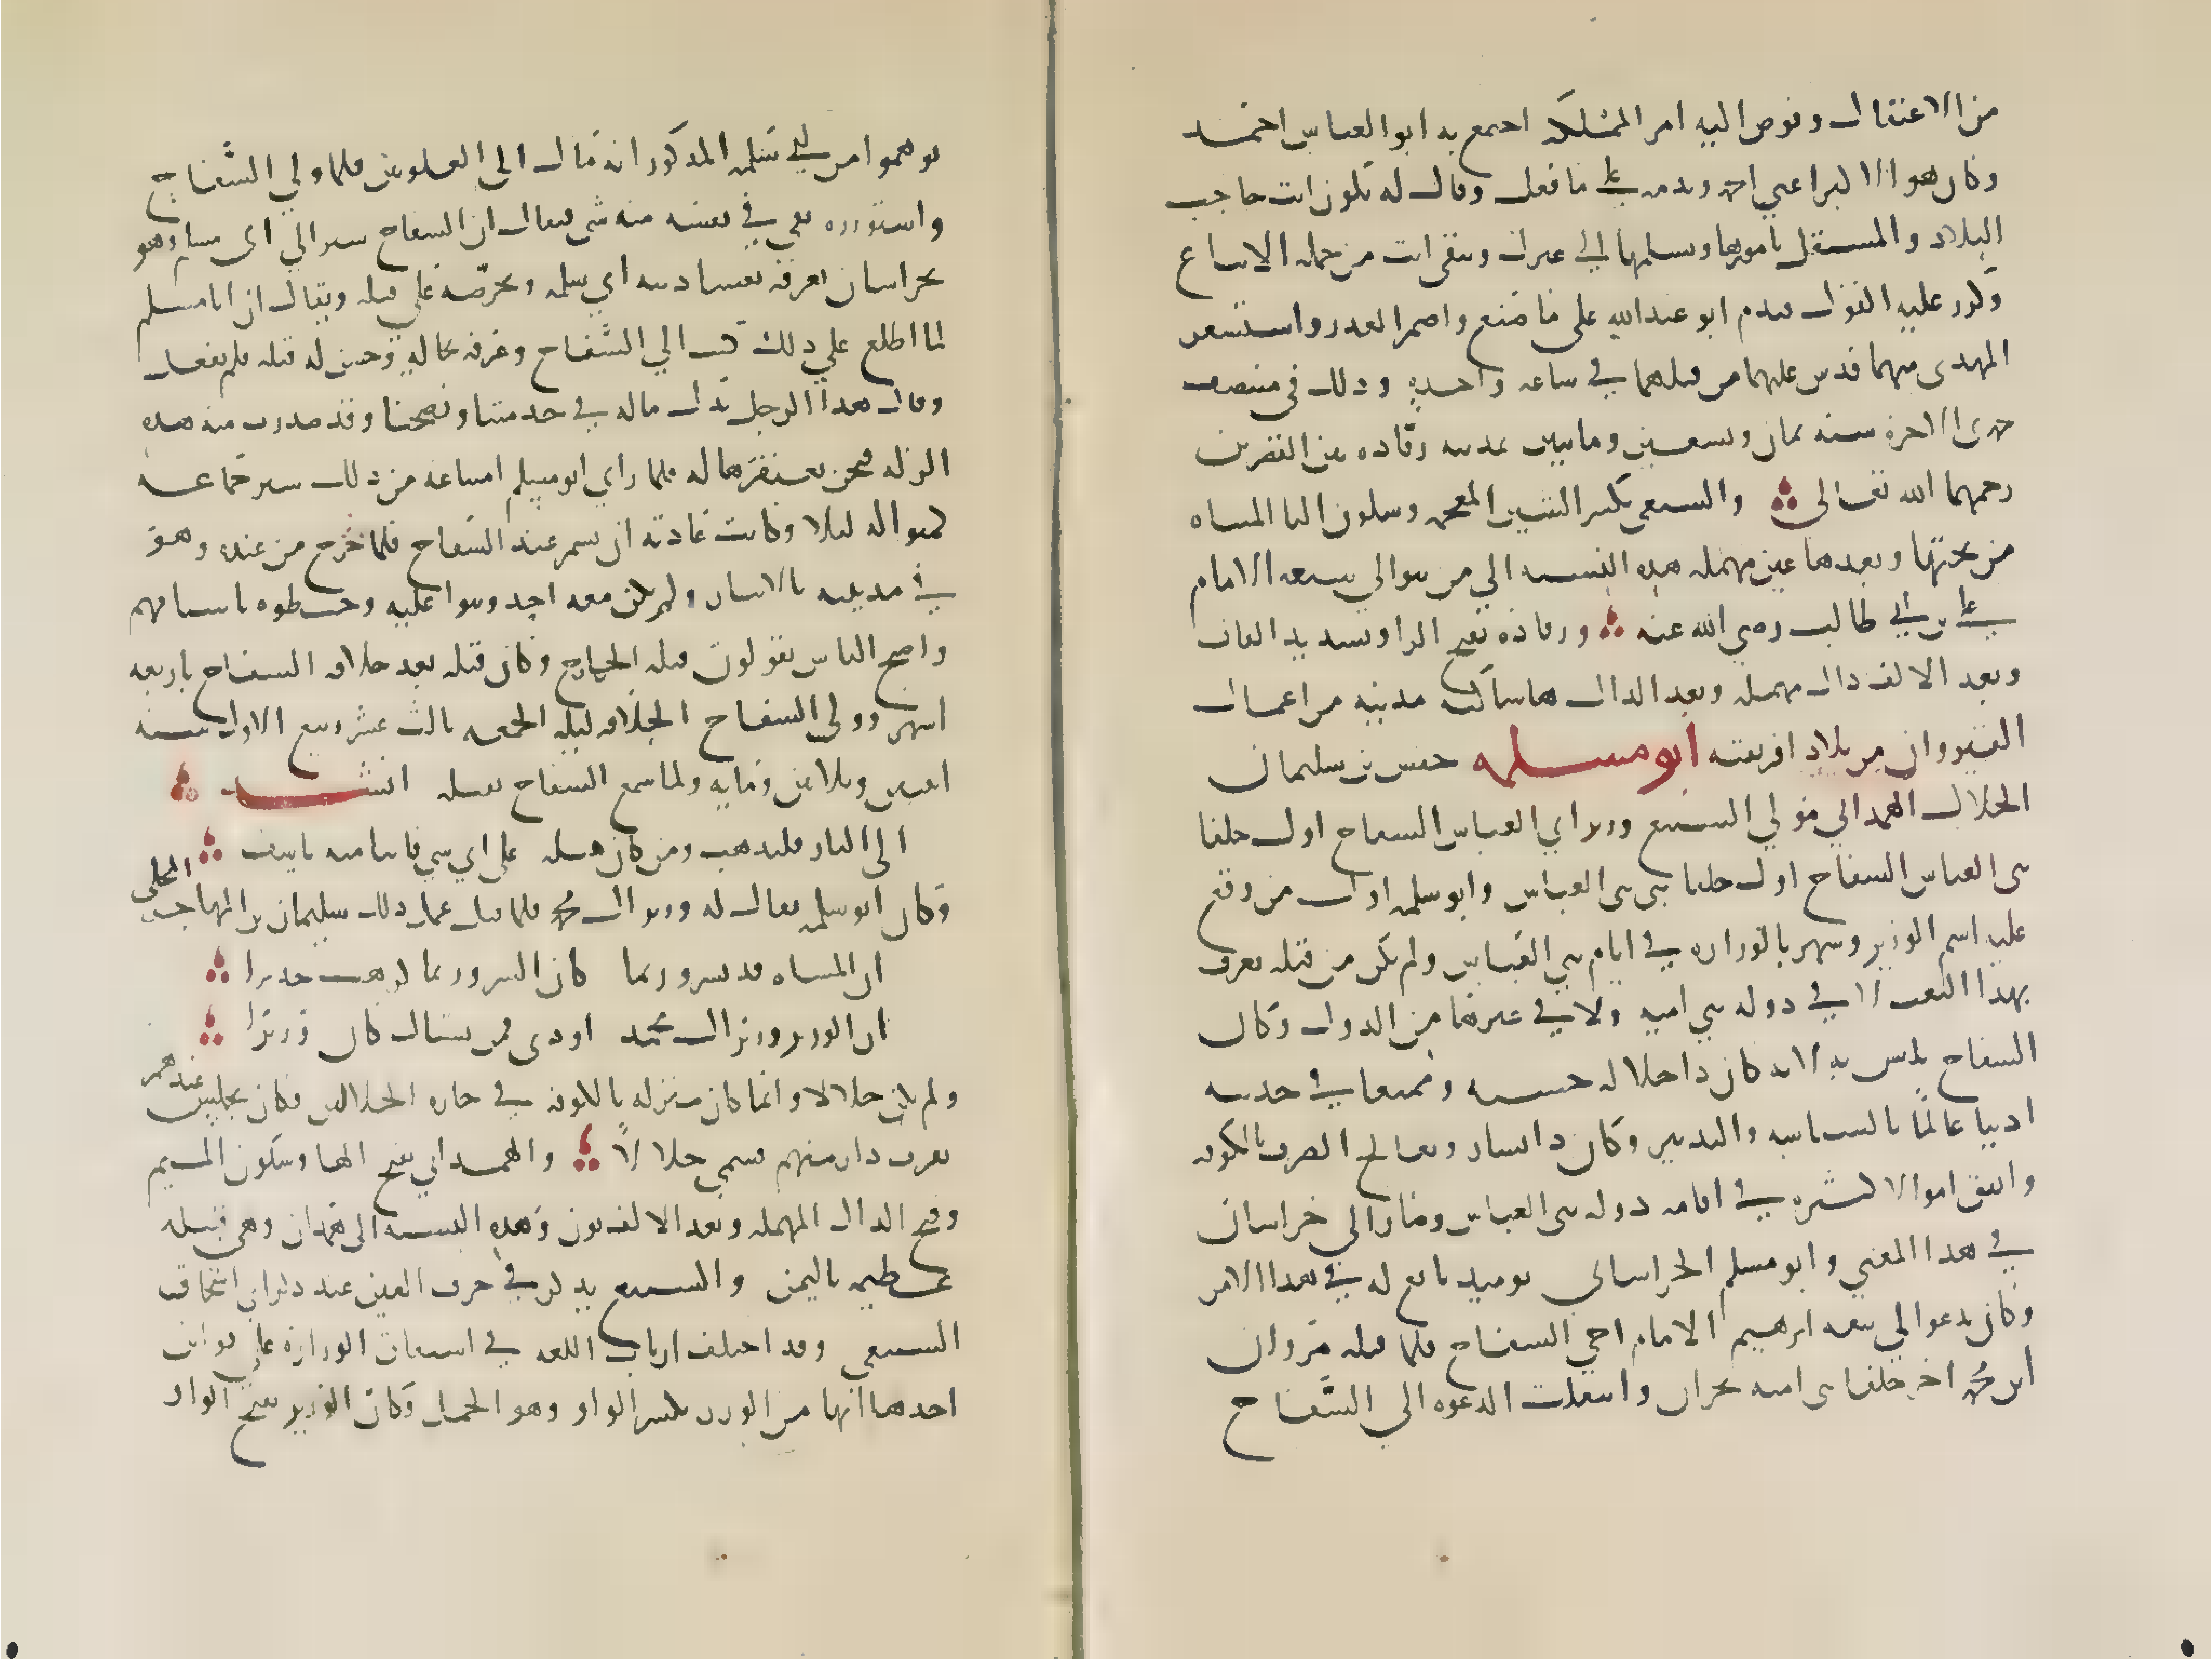 من الاعتقال وفوض اليه امر المملكه اجتمع به ابو العباس احمد
وكان هو الاكبر اعني احمد وندمه على ما فعل وقال له تكون انت صاحب
البلاد والمستقل بامورها وتسلمها الي غيرك وتبقى انت من جمله الاتباع
وكرر عليه القول فندم ابو عبد الله على ما صنع واضمر الغدر واستشعر
المهدى منهما فدس عليهما من قتلهما في ساعه واحده وذلك فى منتصف
جمدى الاخرة سنه ثمان وتسعين ومايتين بمدينه رقاده بين القصرين
رحمهما الله تعالى والشيعى بكسر الشين المعجمه وسكون اليا المثناه
من تحتها وبعدها عين مهمله هذه النسبه الي من يتوالي شيعه الامام
علي بن ابي طالب رضي الله عنه ورقاده بفتح الرا وتشديد القاف
وبعد الالف دال مهمله وبعد الدال ها ساكنه مدينه من اعمال
القيروان من بلاد افريقيه ابو مسلمه حفص بن سليمان
الخلال الهمداني مولي السبيع وزير ابي العباس السفاح اول خلفا
بنى العباس السفاح اول خلفا بنى بنى العباس وابو سلمه اول من وقع
عليه اسم الوزير وشهر بالوزاره في ايام بني العباس ولم يكن من قبله يعرف
بهذا النعت لا في دوله بني اميه ولا في غيرها من الدول وكان
السفاح يانس به لانه كان ذا خلال حسنه وممتعا في حديثه
اديبا عالمًا بالسياسه والتدبير وكان ذا يسار ويعالج الصرف بالكوفه
وانفق اموالا كثيره في اقامه دوله بنى العباس وصار الى خراسان
في هذا المعني وابو مسلم الخراساني يوميذ تابع له في هذا الامر
وكان يدعو الي بيعه ابرهيم الامام اخي السفاح فلما قتله مروان
ابن محمد اخر خلفا بنى اميه بحران وانتقلت الدعوه الي السفاح
توهموا من ابي سلمه المذكور انه مال الى العلويين فلما ولي السفاح
واستوزره بقي في نفسه منه شي فيقال ان السفاح سير الي ابى مسلم وهو
بخراسان يعرفه بفساد نيه ابي سلمه ويحرضه علي قتله ويقال ان ابا مسلم
لما اطلع علي ذلك كتب الي السفاح وعرفه بحاله وحسن له قتله فلم يفعل
وقال هذا الرجل بذل ماله في خدمتنا ونصحنا وقد صدرت منه هذه
الزله فنحن نغتفرها له فلما راي ابو مسلم امتناعه من ذلك سير جماعه
كمنوا له ليلا وكانت عادته ان يسمر عند السفاح فلما خرج من عنده وهو
في مدينته بالانبار ولم يكن معه احد وثبوا عليه وخبطوه باسيافهم
واصبح الناس يقولون قتله الخوارج وكان قتله بعد خلافه السفاح باربعه
اشهر وولى السفاح الخلافه ليله الجمعه ثالث عشر ربيع الاول سنه
اثنين وثلاثين ومايه ولما سمع السفاح بقتله انشد
الى النار فليذهب ومن كان مثله على اي شي فاتنا منه ناسف
وكان ابو سلمه يقال له وزير ال محمد فلما قتل عمل ذلك سليمان بن المهاجر البجلى
ان المساه قد تسر وربما كان السرور بما كرهت جديرا
ان الوزير وزير ال محمد اودى فمن يشناك كان وزيرا
ولم يكن خلالا وانما كان منزله بالكوفه في حاره الخلالين فكان يجلس عندهم
لقرب داره منهم فسمي خلالاً والهمداني بفتح الها وسكون الميم
وفتح الدال المهمله وبعد الالف نون وهذه النسبه الى همدان وهي قبيله
عظيمه باليمن والسبيع يذكر في حرف العين عند ذكر ابي اسحاق
السبيعي وقد اختلف ارباب اللغه في اشتقاق الوزاره علي قولين
احدها انها من الوزر بكسر الواو وهو الحمل وكان الوزير بفتح الواو